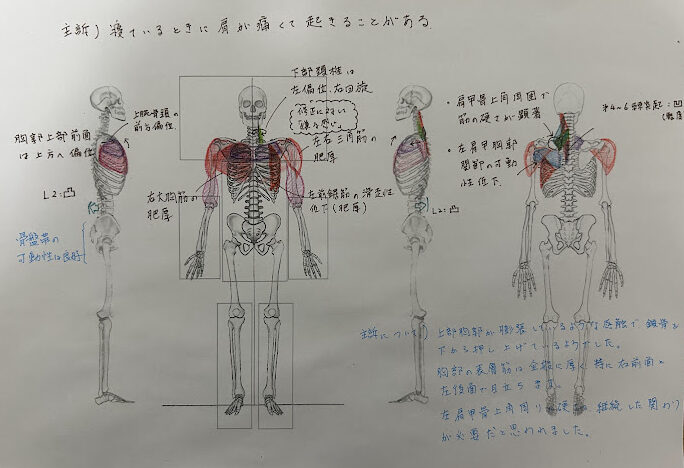 主訴)寝ているときに肩が痛くて起きることがある。
下部頚椎は
左偏位、右回旋
修正に
左右三角筋の
肥厚
上腕骨頭の
前方偏位
胸部上部前面
は上方へ偏位
L2:凸
骨盤帯の
可動性は良好
右大胸筋の
肥厚
左前鋸筋の滑走性
低下(肥厚)
・肩甲骨上角周囲で
筋の硬さが顕著
・左肩甲胸郭
関節の可動
性低下
L2:凸
第4~6棘突起:凹
主訴について)上部胸郭が膨張しているような感触で鎖骨を
下から押し上げているようでした。
胸部の表層筋は全体に厚く特に右前面と
左後面で目立ちます。
左肩甲骨上角周りの硬さは継続した関わり
が必要だと思われました。